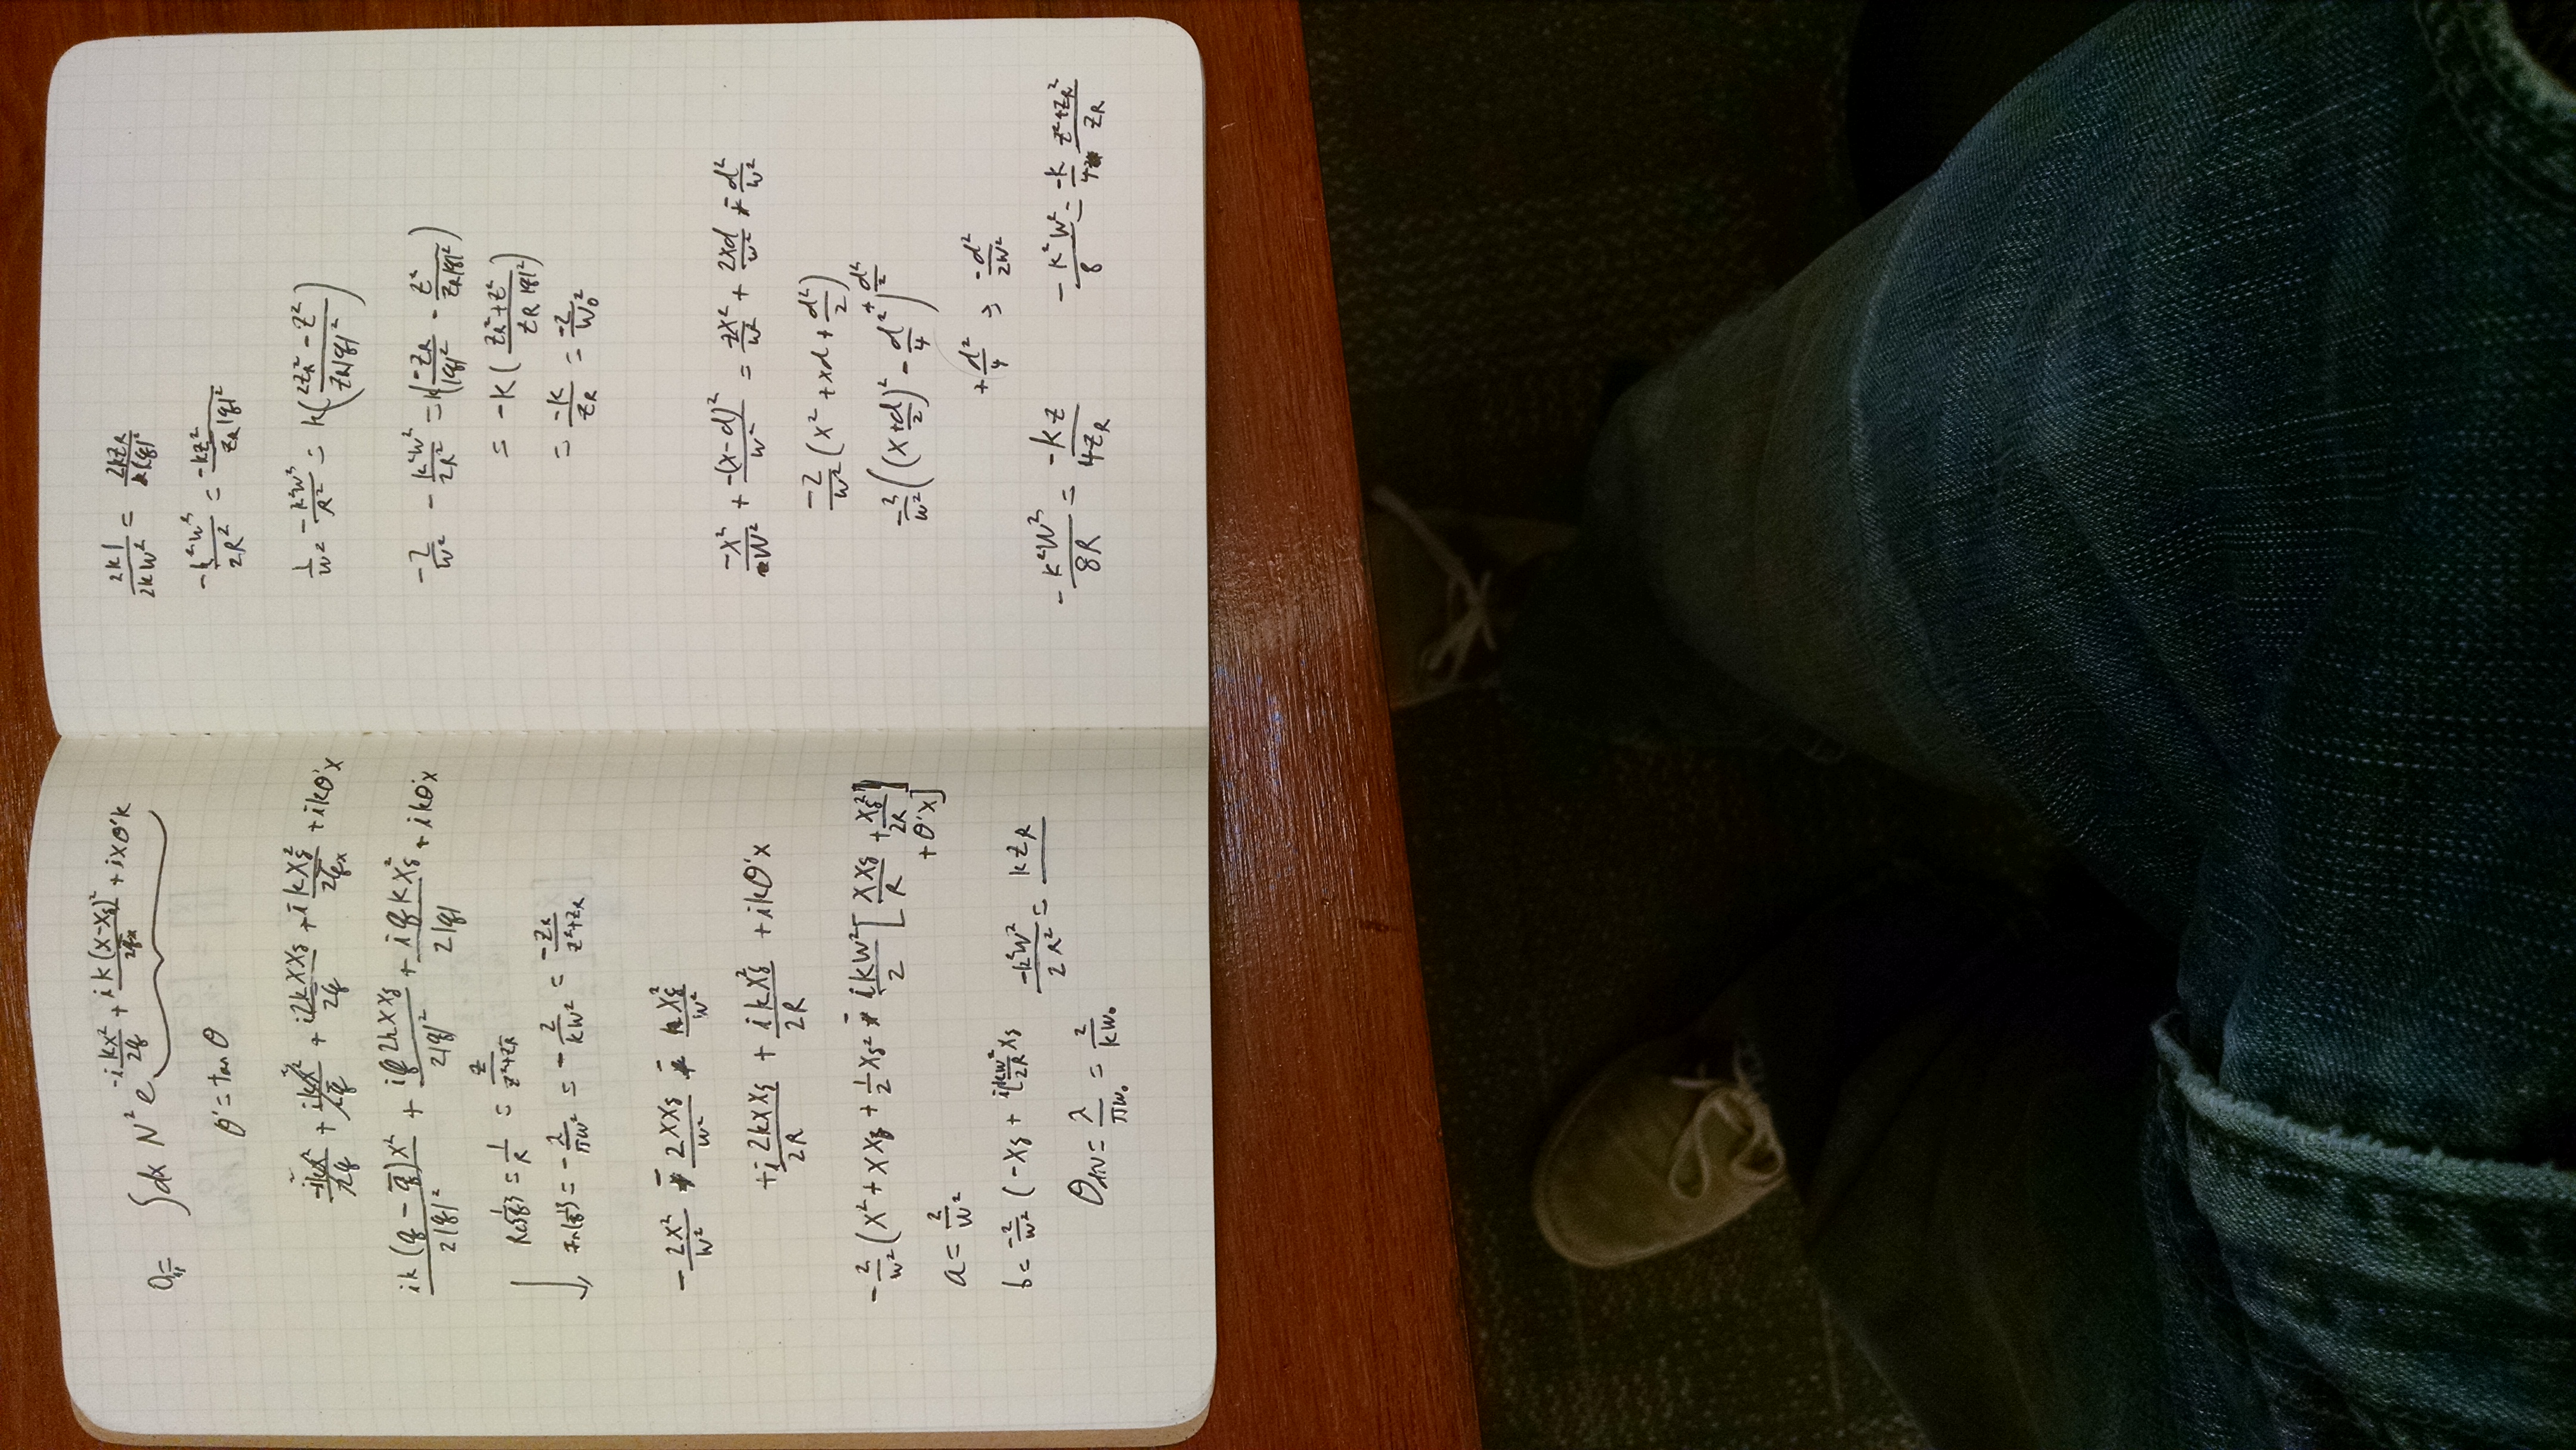 a₁₁ = ∫dx N² e^{-i kx²/2q + ik(x-x_s)²/2q_x + ixθ'k}
θ' = tan θ
-ikx²/2q + ikx²/2q + i2kxx_s/2q + ikx_s²/2q_x + ikθ'x
ik(q-q̄)x²/2|q|² + iq̄2kxx_s/2|q|² + iq̄kx_s²/2|q| + ikθ'x
Re(1/q) = 1/R = z/(z²+z_R²)
Im(1/q) = -λ/πw² = -2/kw² = -z_R/(z²+z_R)
-2x²/w² - 2xx_s/w² - x_s²/w²
+i2kxx_s/2R + ikx_s²/2R + ikθ'x
-2/w² (x² + xx_s + 1/2 x_s² - ikw²/2 [xx_s/R + x_s²/2R]
+ θ'x]
a = 2/w²
b = -2/w² (-x_s + ikw²/2R x_s
-k²w²/2R² = kz_R
θ_div = λ/πw₀ = 2/kw₀
2k1/2kw² = 2kz_R/2|q|²
-k²w²/2R² = -kz²/z_R|q|²
1/w² - k²w²/R² = k(2z_R² - z²/z_R|q|²)
-2/w² - k²w²/2R² = k(-z_R/|q|² - z²/z_R|q|²)
= -k(z_R²+z²/z_R|q|²)
= -k/z_R = -2/w₀²
-x²/w² + -(x-d)²/w² = -2x²/w² + 2xd/w² - d²/w²
-2/w² (x² + xd + d²/2)
-2/w² ((x+d/2)² - d²/4 + d²/2)
+d²/4 → -d²/2w²
-k²w²/8R = -kz/4z_R
-k²w²/8 = -k/4 z²+z_R²/z_R